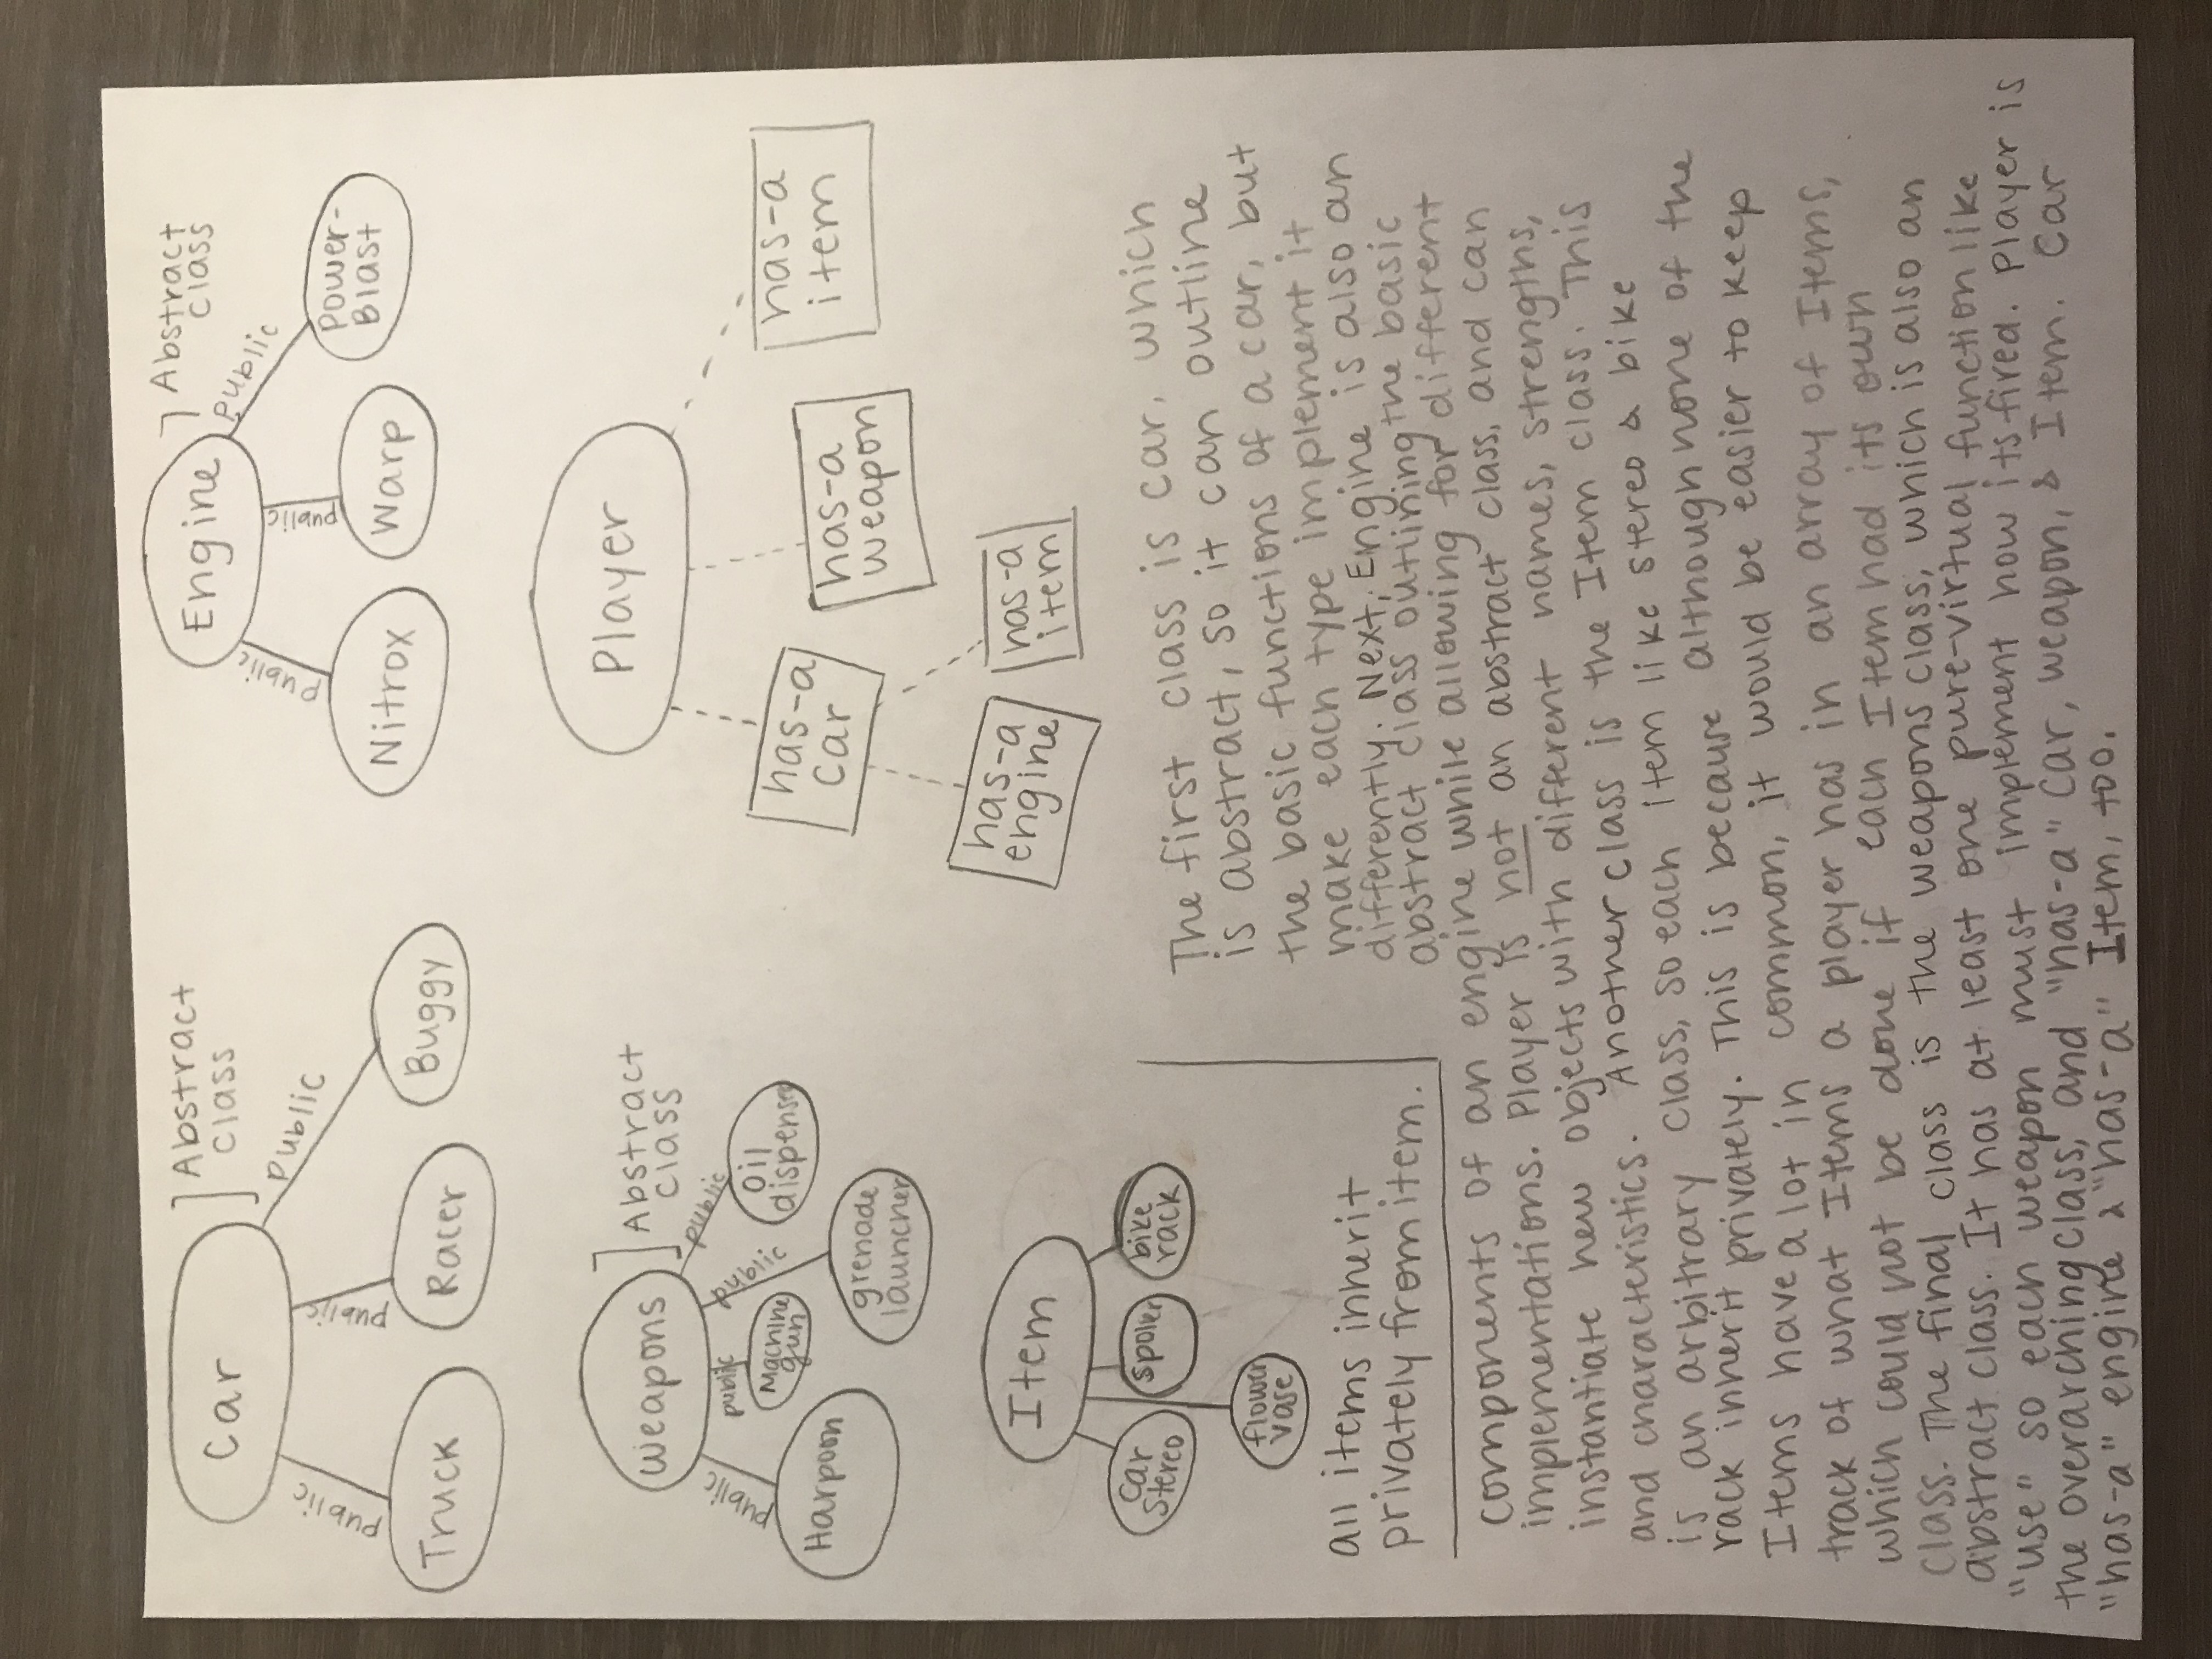 Car
Abstract
class
public
public
public
Truck
Racer
Buggy
Engine
Abstract
class
public
public
public
Nitrox
Warp
Power-
Blast
weapons
Abstract
class
public
public
public
public
Harpoon
Machine
gun
grenade
launcher
oil
dispenser
Player
has-a
car
has-a
weapon
has-a
item
has-a
engine
has-a
item
Item
car
stereo
spoiler
bike
rack
flower
vase
all items inherit
privately from item.
The first class is car, which
is abstract, so it can outline
the basic functions of a car, but
make each type implement it
differently. Next, Engine is also an
abstract class outlining the basic
components of an engine while allowing for different
implementations. Player is not an abstract class, and can
instantiate new objects with different names, strengths,
and characteristics. Another class is the Item class. This
is an arbitrary class, so each item like stereo & bike
rack inherit privately. This is because although none of the
Items have a lot in common, it would be easier to keep
track of what Items a player has in an array of Items,
which could not be done if each Item had its own
class. The final class is the weapons class, which is also an
abstract class. It has at least one pure-virtual function like
"use" so each weapon must implement how its fired. Player is
the overarching class, and "has-a" car, weapon, & Item. Car
"has-a" engine & "has-a" Item, too.